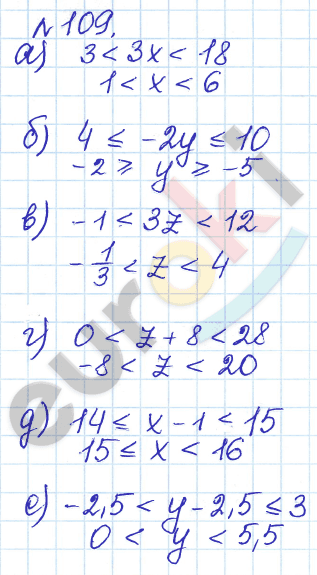 № 109.
а) 3 < 3x < 18
1 < x < 6
б) 4 ≤ -2y ≤ 10
-2 ≥ y ≥ -5
в) -1 < 3z < 12
-1/3 < z < 4
г) 0 < z + 8 < 28
-8 < z < 20
д) 14 ≤ x - 1 < 15
15 ≤ x < 16
е) -2,5 < y - 2,5 ≤ 3
0 < y < 5,5
euroki